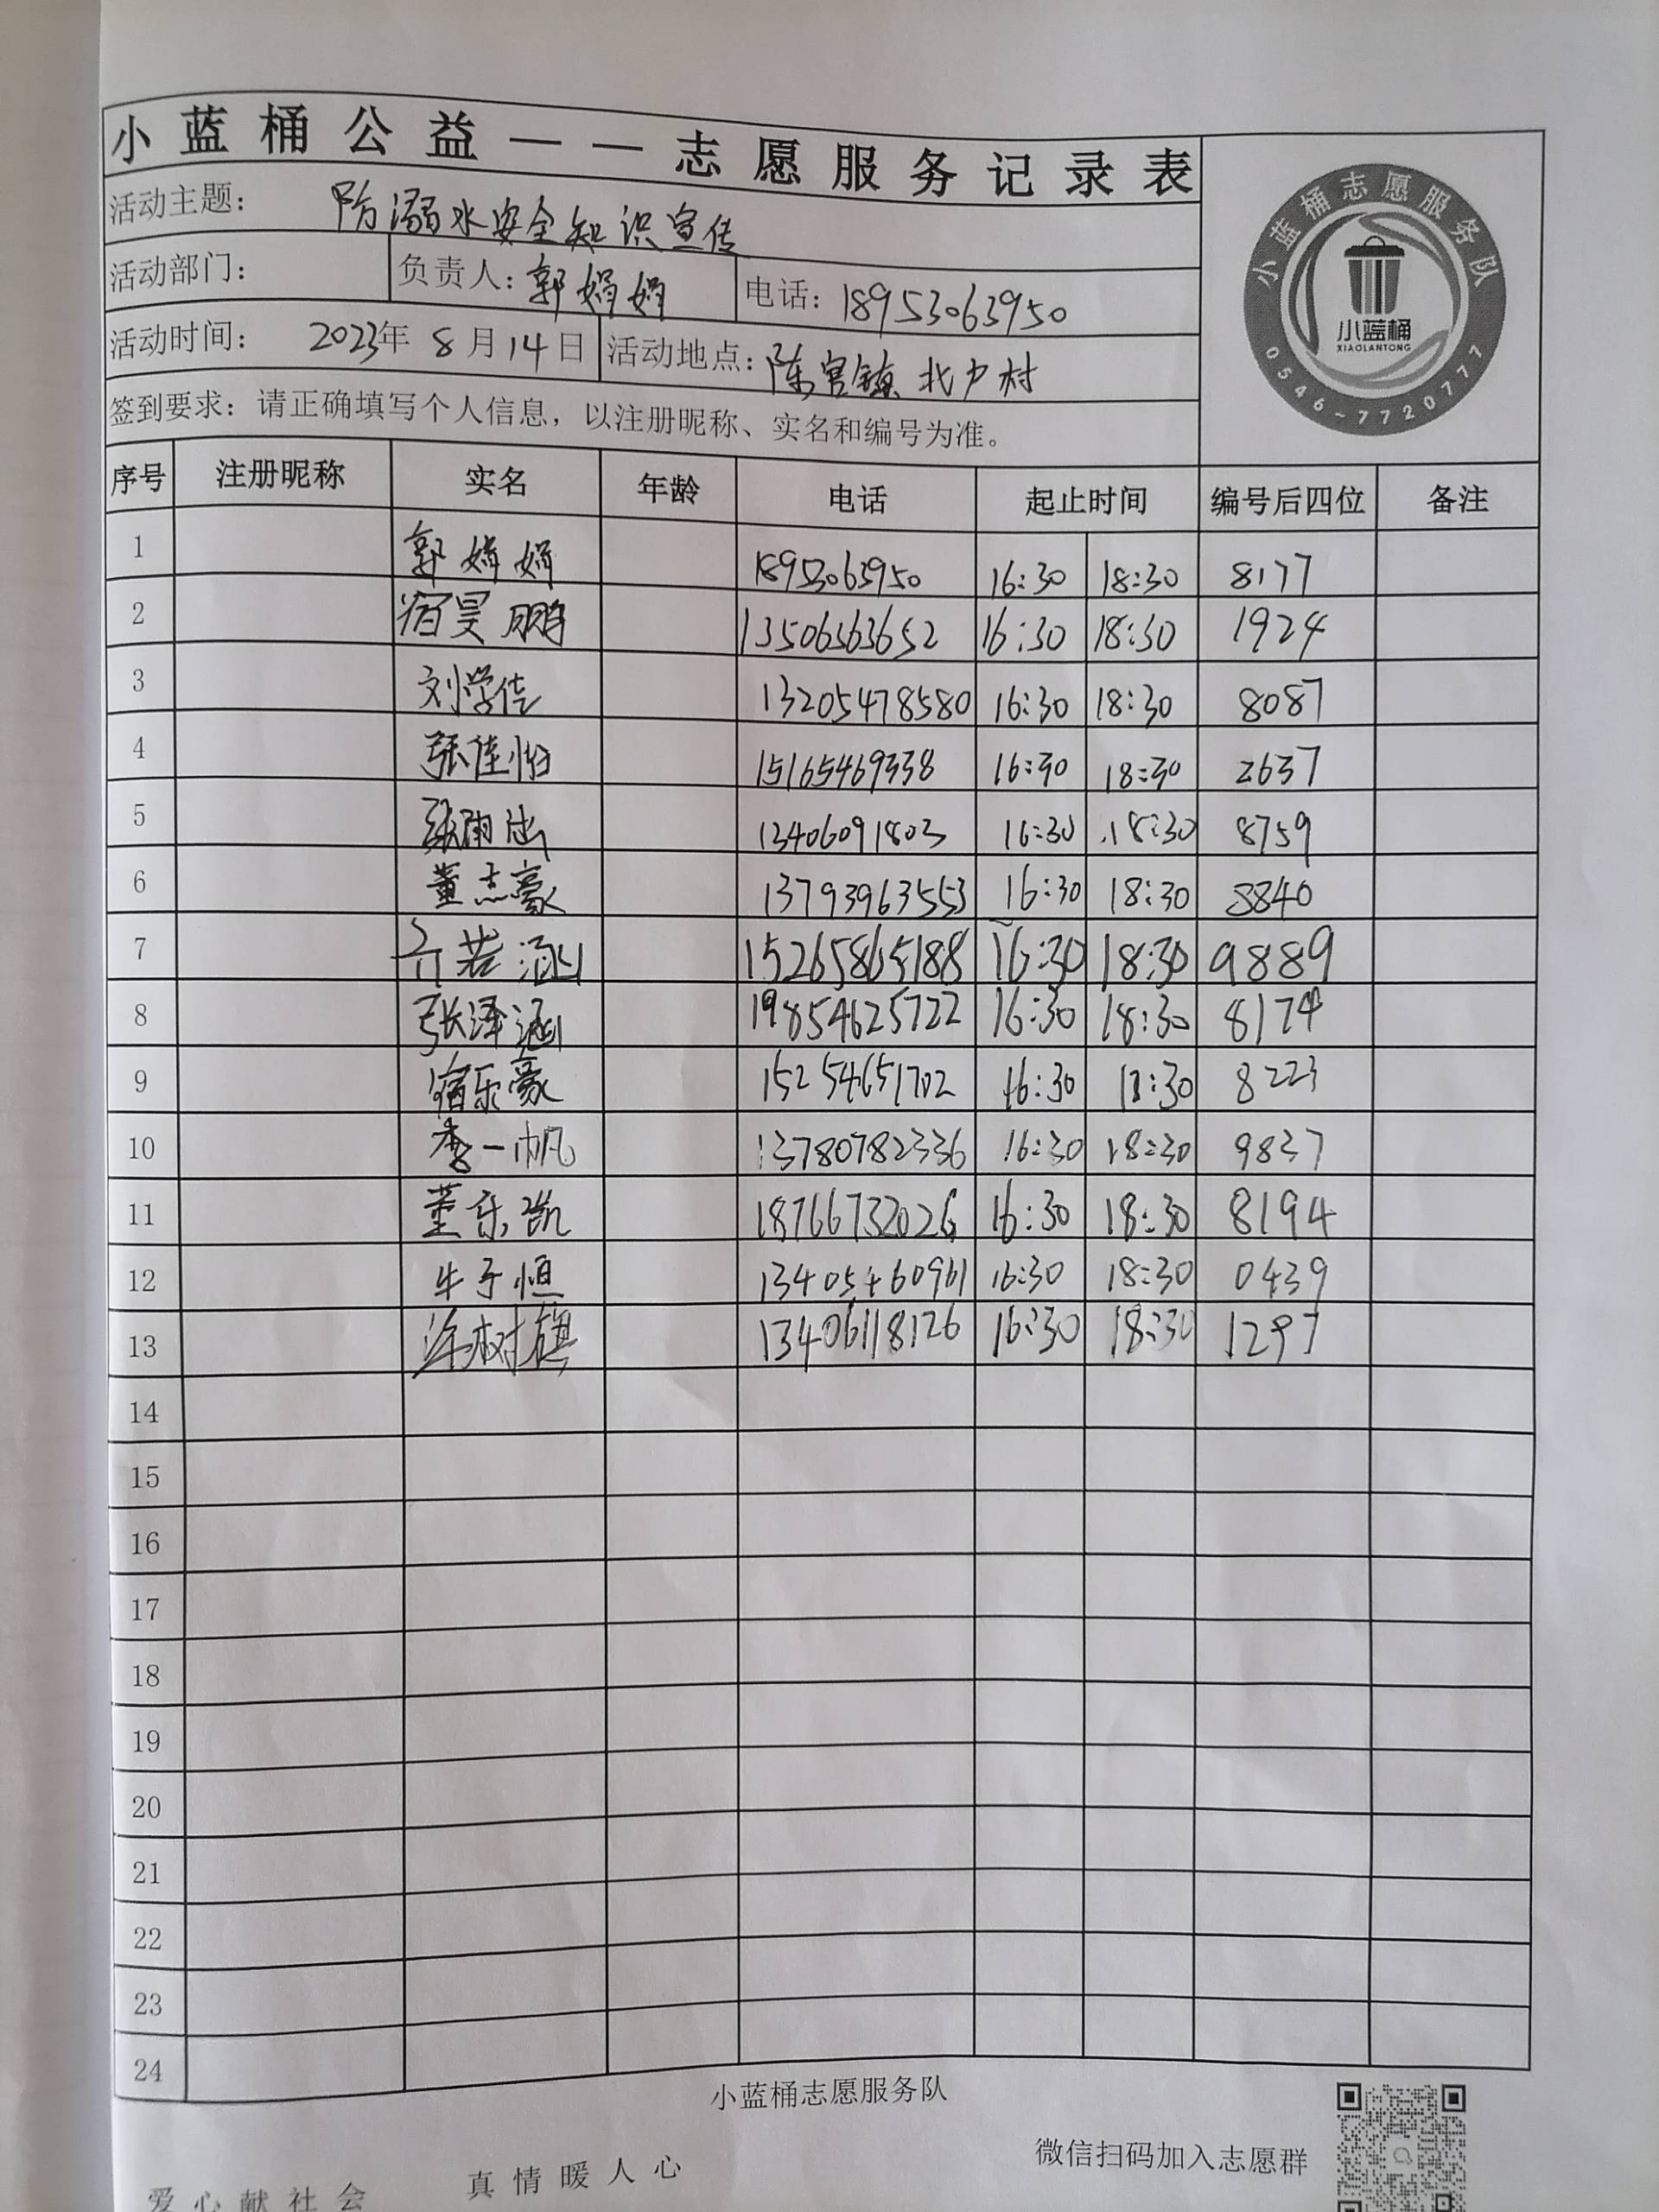 小蓝桶公益——志愿服务记录表
活动主题： 防溺水安全知识宣传
活动部门： 负责人：郭娟娟 电话：18953063950
活动时间： 2023年 8月14日 活动地点：陈官镇北户村
签到要求：请正确填写个人信息，以注册昵称、实名和编号为准。
小蓝桶志愿服务队
小蓝桶
XIAOLANTONG
0546-7720777
序号 注册昵称 实名 年龄 电话 起止时间 编号后四位 备注
1 郭娟娟 18953063950 16:30 18:30 8177
2 宿昊鹏 13506363652 16:30 18:30 1924
3 刘学佳 13205478580 16:30 18:30 8087
4 张佳怡 15165469338 16:30 18:30 2637
5 张雨 13406091803 16:30 18:30 8759
6 董志豪 13793963553 16:30 18:30 8840
7 亓若涵 15265865188 16:30 18:30 9889
8 张泽涵 19854625722 16:30 18:30 8174
9 宿乐豪 15254651702 16:30 18:30 8223
10 李一帆 13780782336 16:30 18:30 9837
11 董乐凯 18766732026 16:30 18:30 8194
12 牛子恒 13405460961 16:30 18:30 0439
13 树旗 13406118126 16:30 18:30 1297
14
15
16
17
18
19
20
21
22
23
24
小蓝桶志愿服务队
微信扫码加入志愿群
爱心献社会 真情暖人心